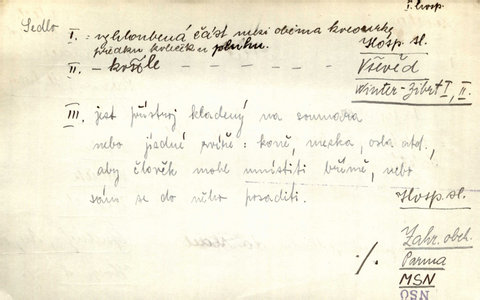 I. hosp.
Sedlo
I. - vyhloubená část mezi oběma
předku koleček u pluhu.
Hosp. sl.
II. - křísle - - - - - -
Vševěd
Winter-Zíbrt I, II.
III. jest přístroj kladený na soumara
nebo jízdné zvíře: koně, mezka, osla atd.,
aby člověk mohl umístiti břímě, nebo
sám se do něho posaditi.
Hosp. sl.
Zahr. obch.
./. Panna
MSN
OSN